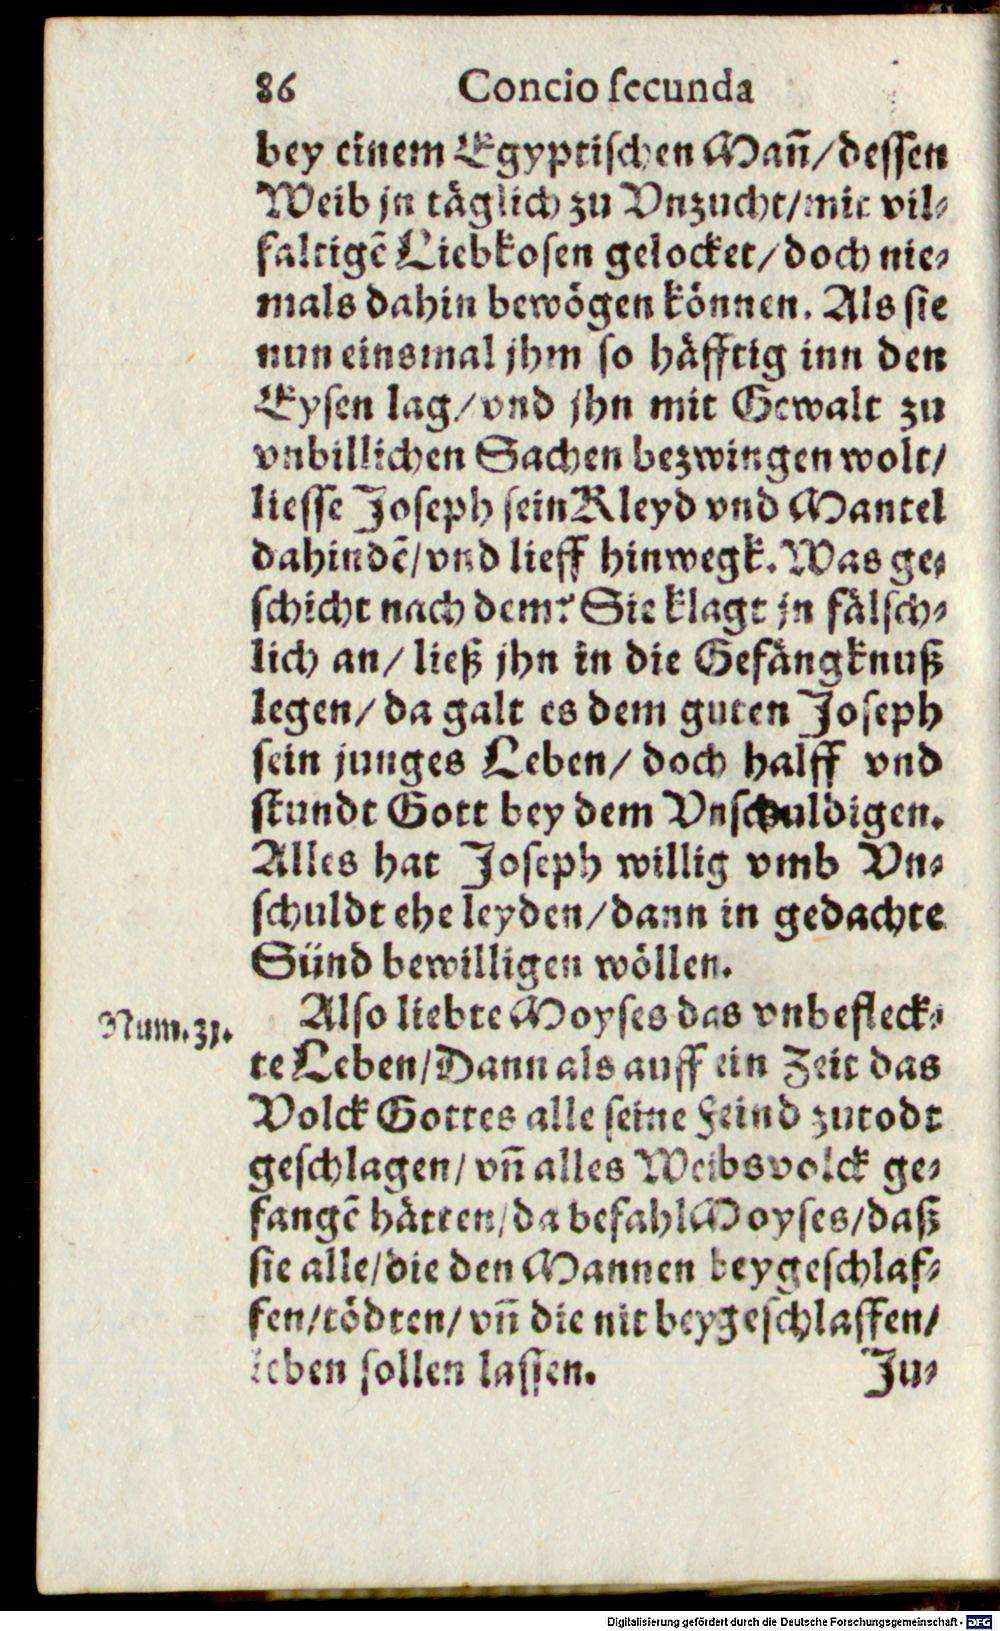 86 Concio secunda
bey einem Egyptischen Mañ/dessen
Weib jn täglich zu Vnzucht/mit vil-
faltigẽ Liebkosen gelocket/doch nie-
mals dahin bewögen können. Als sie
nun einsmal jhm so häfftig inn den
Eysen lag/vnd jhn mit Gewalt zu
vnbillichen Sachen bezwingen wolt/
liesse Joseph sein Kleyd vnd Mantel
dahindẽ/vnd lieff hinwegk. Was ge-
schicht nach dem? Sie klagt jn fälsch-
lich an/ließ jhn in die Gefängknuß
legen/da galt es dem guten Joseph
sein junges Leben/doch halff vnd
stundt Gott bey dem Vnschuldigen.
Alles hat Joseph willig vmb Vn-
schuldt ehe leyden/dann in gedachte
Sünd bewilligen wöllen.
Num.31.
Also liebte Moyses das vnbefleck-
te Leben/Dann als auff ein Zeit das
Volck Gottes alle seine Feind zutodt
geschlagen/vñ alles Weibsvolck ge-
fangẽ hätten/da befahl Moyses/daß
sie alle/die den Mannen beygeschlaf-
fen/tödten/vñ die nit beygeschlaffen/
leben sollen lassen.
Ju-
Digitalisierung gefördert durch die Deutsche Forschungsgemeinschaft - DFG